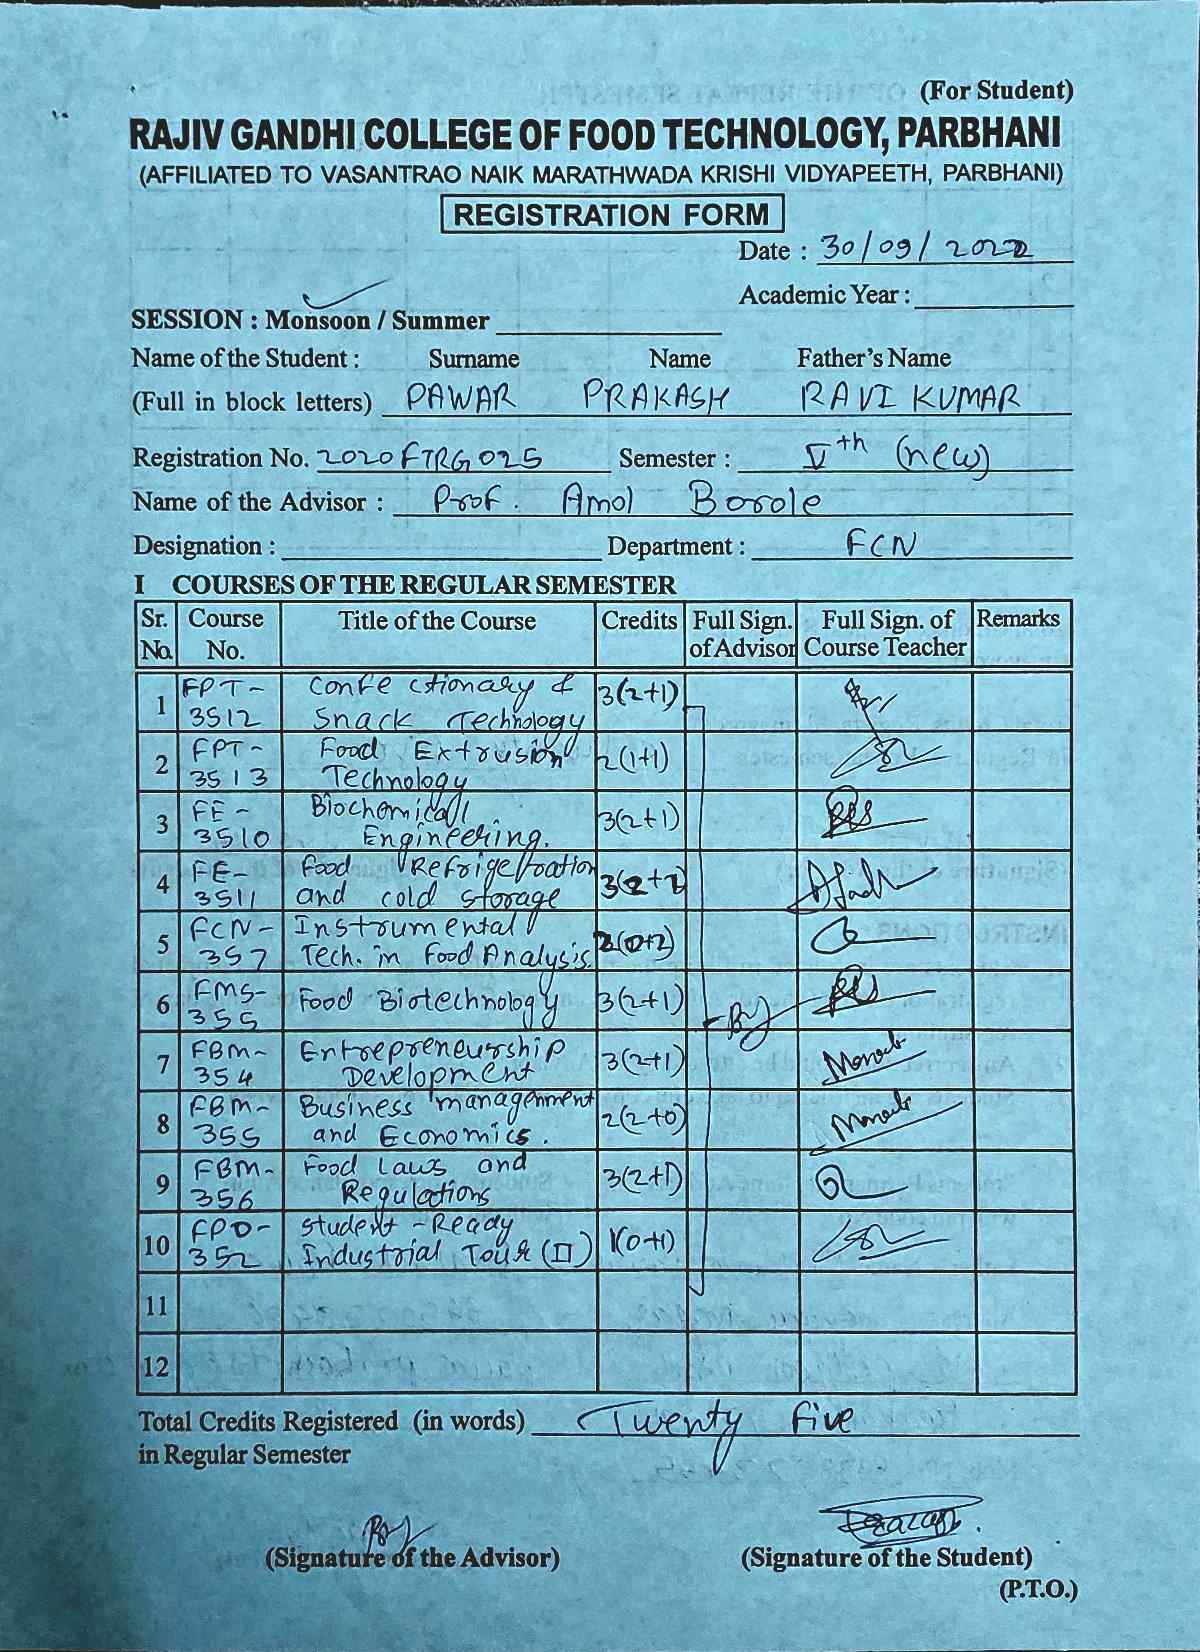 (For Student)
RAJIV GANDHI COLLEGE OF FOOD TECHNOLOGY, PARBHANI
(AFFILIATED TO VASANTRAO NAIK MARATHWADA KRISHI VIDYAPEETH, PARBHANI)
REGISTRATION FORM
Date : 30/09/2022
Academic Year :
SESSION : Monsoon / Summer
Name of the Student : Surname Name Father's Name
(Full in block letters) PAWAR PRAKASH RAVI KUMAR
Registration No. 2020FTRG025 Semester : Vth (new)
Name of the Advisor : Prof. Amol Borole
Designation : Department : FCN
I COURSES OF THE REGULAR SEMESTER
Sr. Course Title of the Course Credits Full Sign. Full Sign. of Remarks
No. No. of Advisor Course Teacher
1 FPT- Confectionary & 3(2+1)
3512 Snack Technology
2 FPT- Food Extrusion 2(1+1)
3513 Technology
3 FE- Biochemical 3(2+1)
3510 Engineering.
4 FE- Food Refrigeration
3511 and cold storage
5 FCN- Instrumental 2(0+2)
357 Tech. in Food Analysis.
6 FMS- Food Biotechnology 3(2+1)
355
7 FBM- Entrepreneurship 3(2+1)
354 Development
8 FBM- Business managenment 2(2+0)
355 and Economics.
9 FBM- Food Laws and 3(2+1)
356 Regulations
10 FPO- Student-Ready 1(0+1)
352 Industrial Tour (II)
11
12
Total Credits Registered (in words) Twenty Five
in Regular Semester
(Signature of the Advisor) (Signature of the Student)
(P.T.O.)